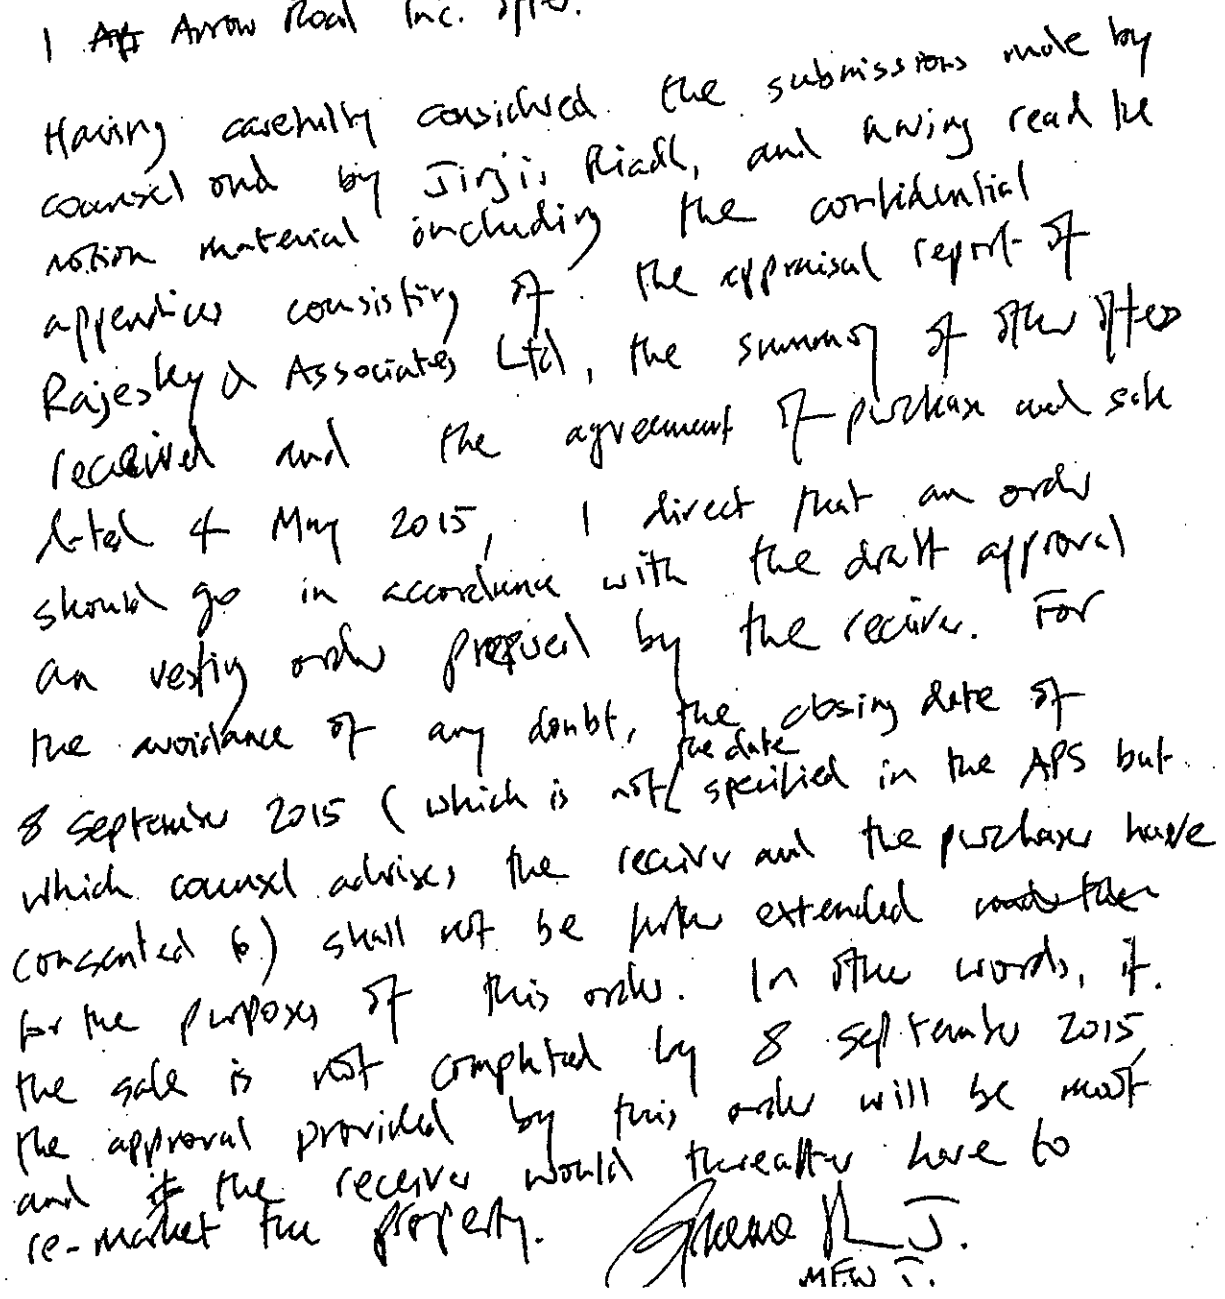 1 Arrow Road Inc. offer.
Having carefully considered the submissions made by
counsel and by Jirjis Riadh, and having read the
motion material including the confidential
appendices consisting of the appraisal report of
Rajesky & Associates Ltd, the summary of other offers
received and the agreement of purchase and sale
dated 4 May 2015, I direct that an order
should go in accordance with the draft approval
an vesting order prepared by the receiver. For
the avoidance of any doubt, the closing date of
8 September 2015 (which is not the date specified in the APS but
which counsel advises the receiver and the purchaser have
consented to) shall not be further extended
for the purposes of this order. In other words, if
the sale is not completed by 8 September 2015,
the approval provided by this order will be moot
and the receiver would thereafter have to
re-market the property.
J.
MEW J.